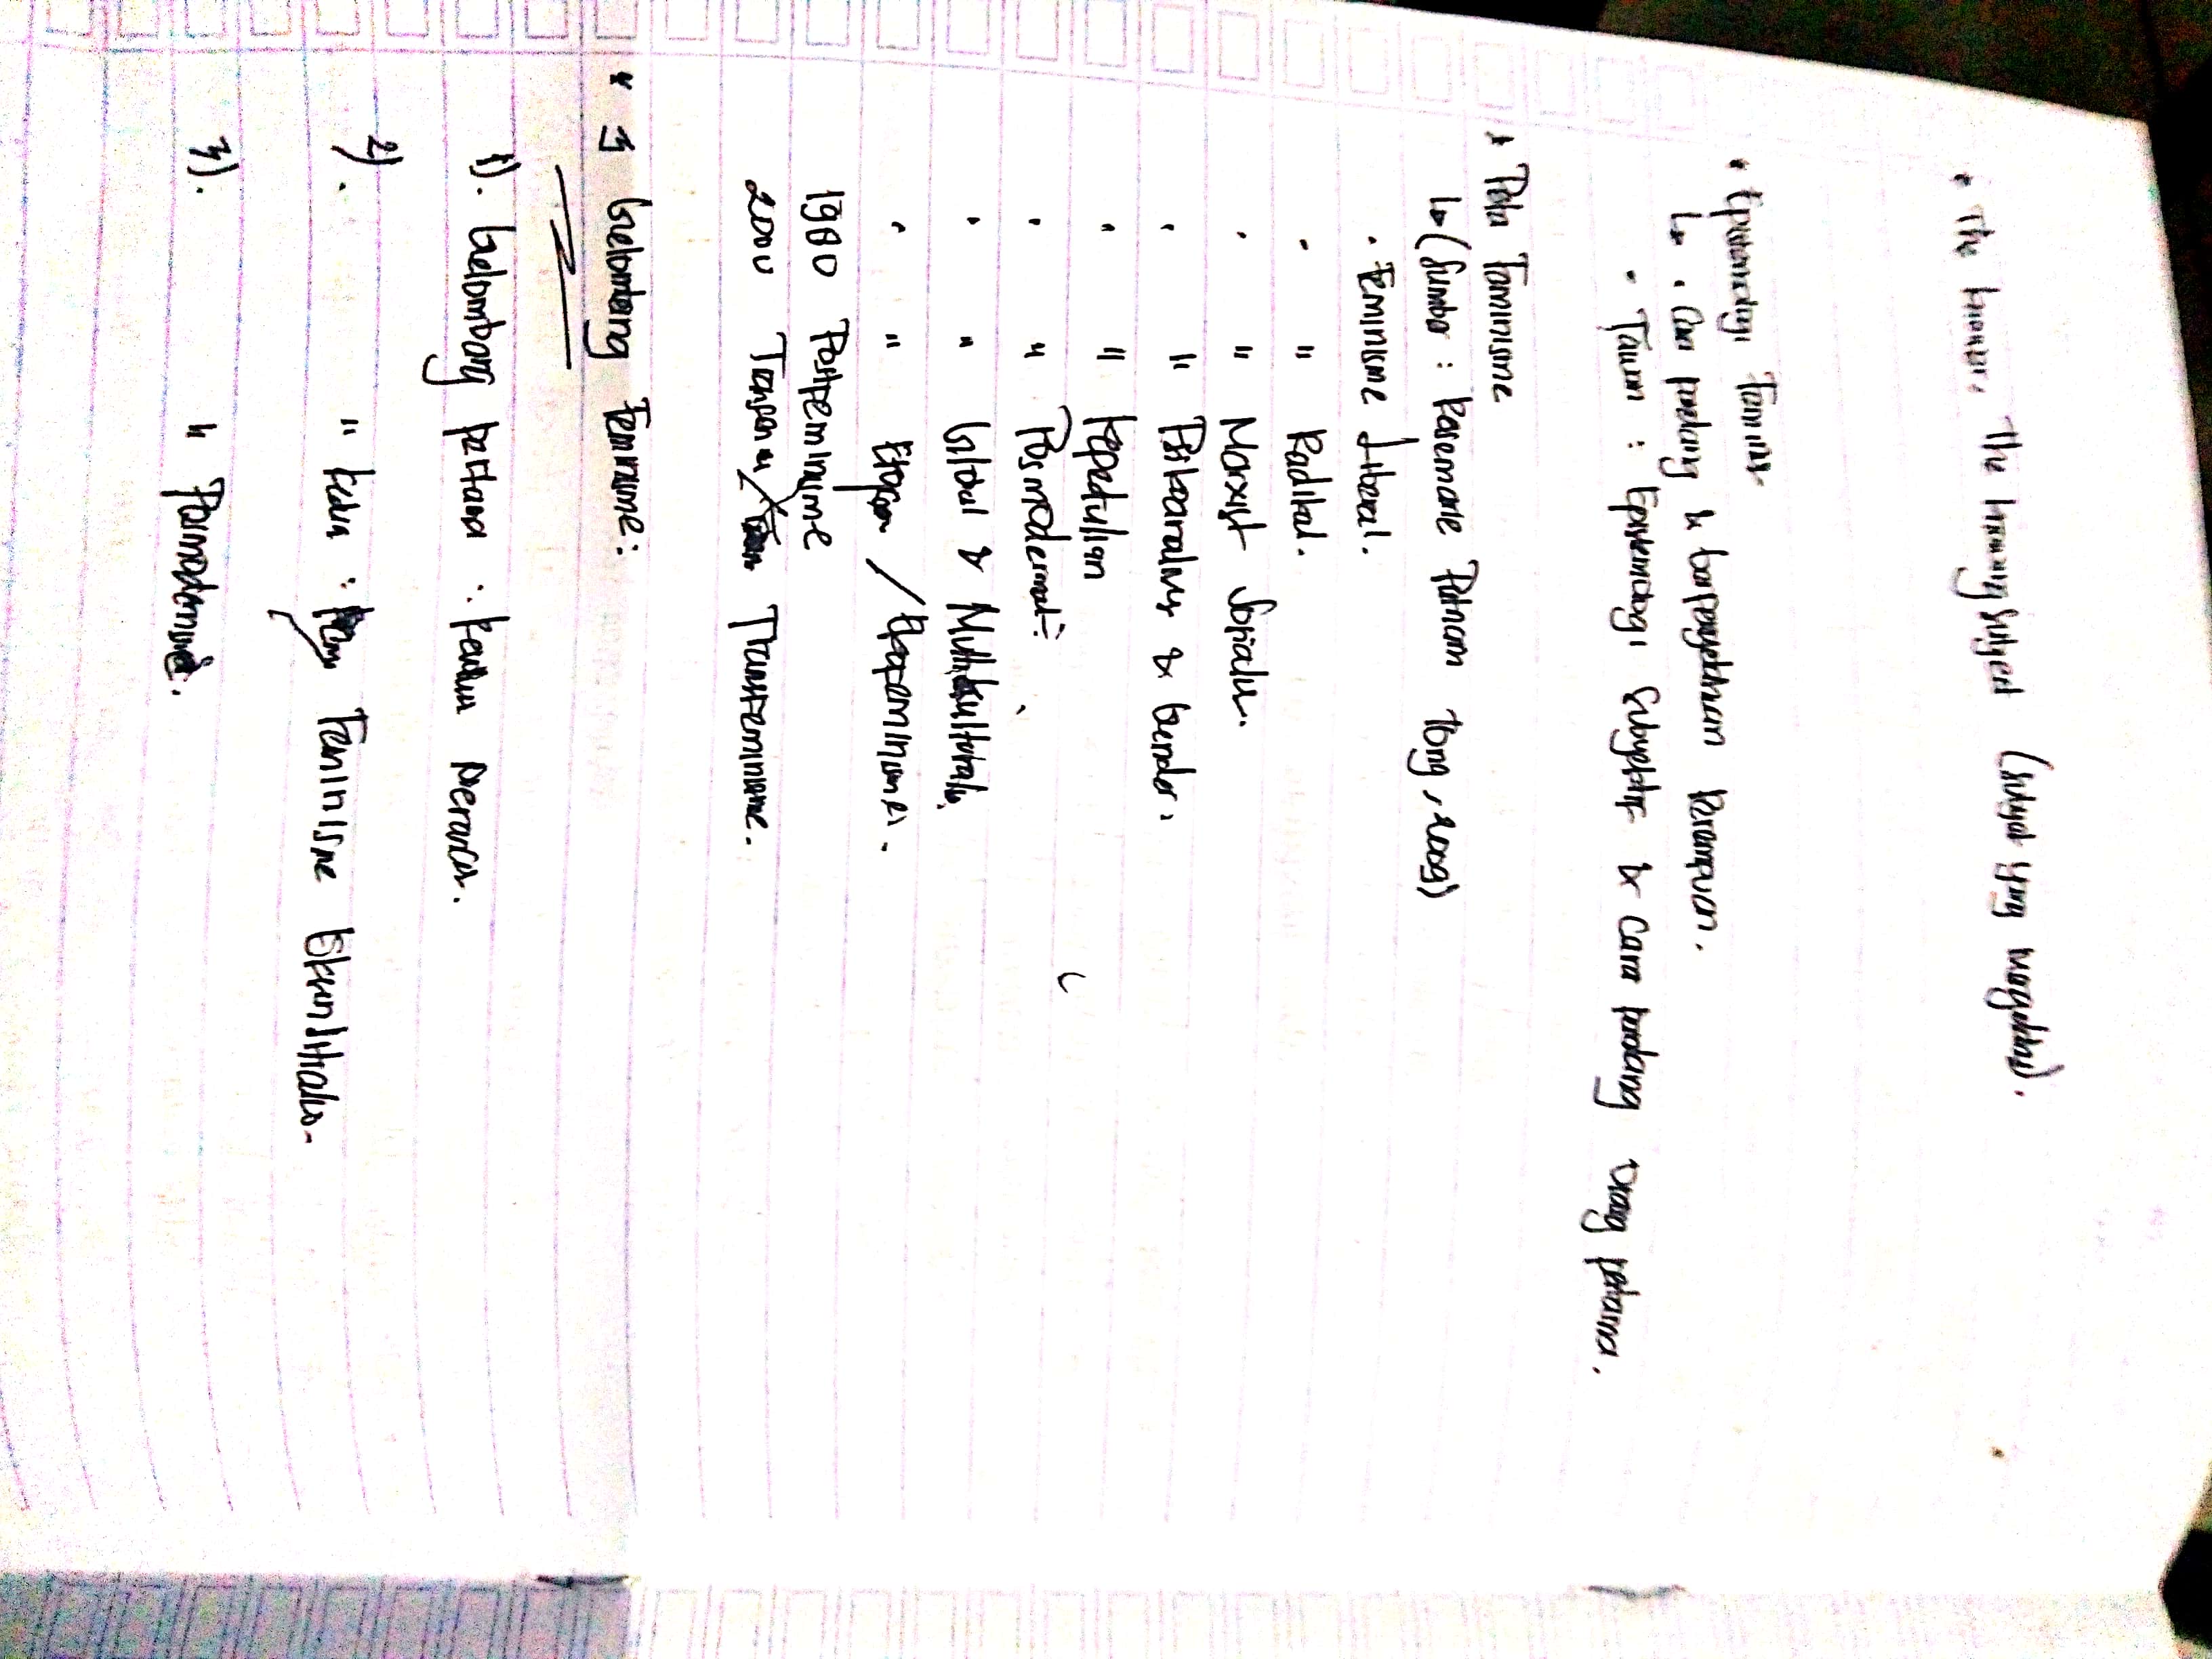 • The knower. The knowing subject (subyek yang mengetahui).
• Epistemologi Feminis
↳ • Cara pandang & berpengetahuan perempuan.
• Taum : Epistemologi Subyektif & Cara pandang orang pertama.
* Peta Feminisme
↳ (Sumber : Rosemarie Putnam Tong, 2009)
• Feminisme Liberal.
• " Radikal.
• " Marxist Sosialis.
• " Psikoanalisis & Gender.
• " Kepedulian
• " Posmodernis.
• " Global & Multikulturalis.
• " / Ekofeminisme.
1980 Postfeminisme
2000 / Transfeminisme.
* 3 Gelombang Feminisme:
1). Gelombang pertama :
2). " kedua : Feminisme Eksistensialis.
3). " Posmodernisme.